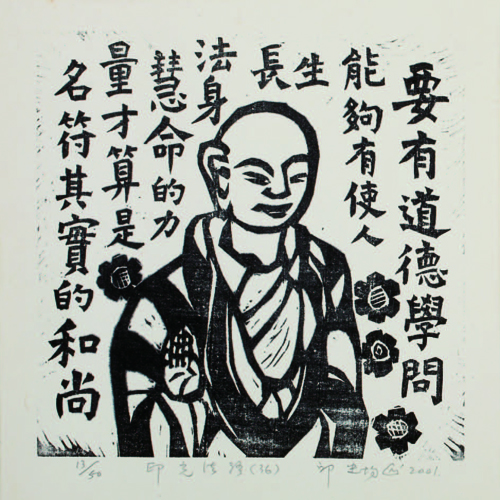 要有道德學問
能夠有使人
生長
法身
慧命的力
量才算是
名符其實的和尚
13/50
2001.